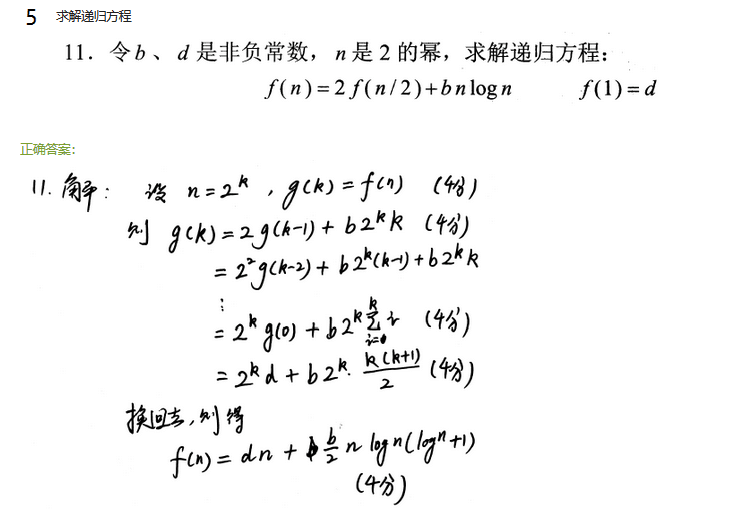 5 求解递归方程
11. 令 b、d 是非负常数，n 是 2 的幂，求解递归方程：
f(n)=2f(n/2)+bnlogn f(1)=d
正确答案：
11. 解： 设 n=2^k , g(k)=f(n) (4分)
则 g(k)=2g(k-1)+b2^k k (4分)
=2^2 g(k-2)+b2^k(k-1)+b2^k k
⋮
=2^k g(0)+b2^k ∑_{i=0}^{k} i (4分)
=2^k d+b2^k· k(k+1)/2 (4分)
换回去，则得
f(n)=dn+ b/2 n logn(logn+1)
(4分)